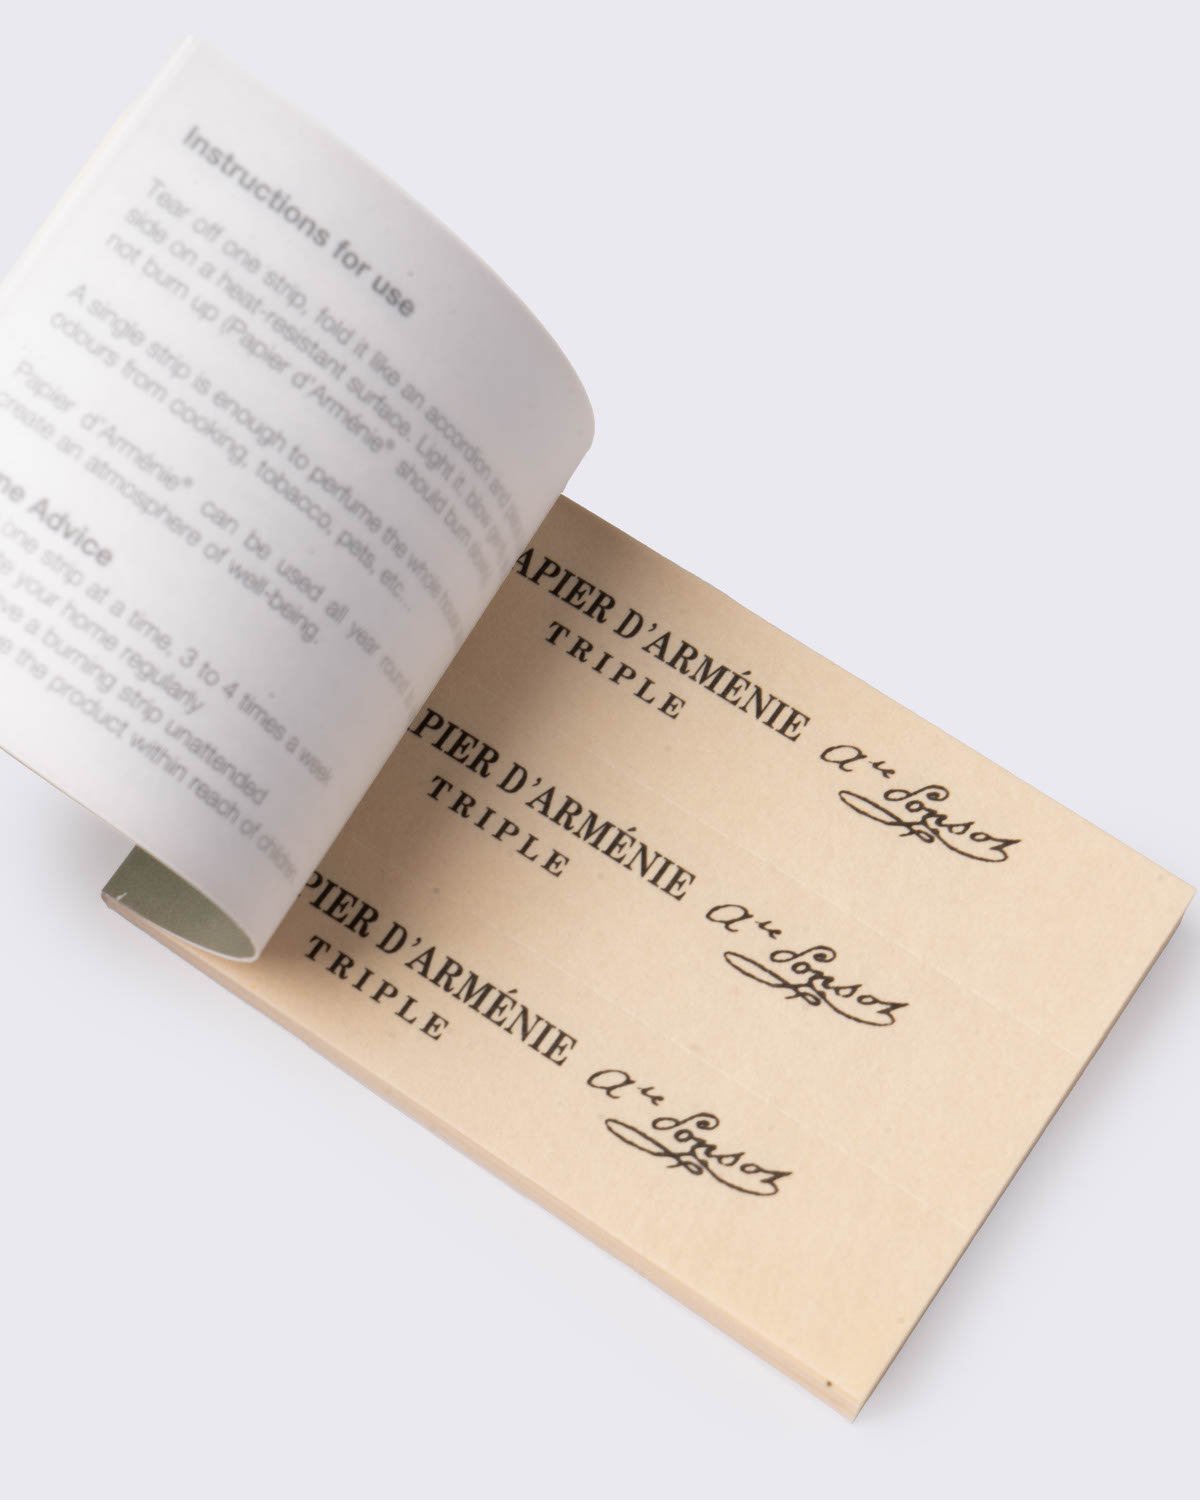 Instructions for use
Tear off one strip, fold it like an accordion and
side on a heat-resistant surface. Light it, blow
not burn up (Papier d'Arménie® should burn
A single strip is enough to perfume the whole house
odours from cooking, tobacco, pets, etc...
Papier d'Arménie® can be used all year round
create an atmosphere of well-being.
Advice
one strip at a time, 3 to 4 times a week
your home regularly
a burning strip unattended
the product within reach of
APIER D'ARMÉNIE
TRIPLE
Ate Ponsot
PIER D'ARMÉNIE
TRIPLE
Ate Ponsot
PIER D'ARMÉNIE
TRIPLE
Ate Ponsot